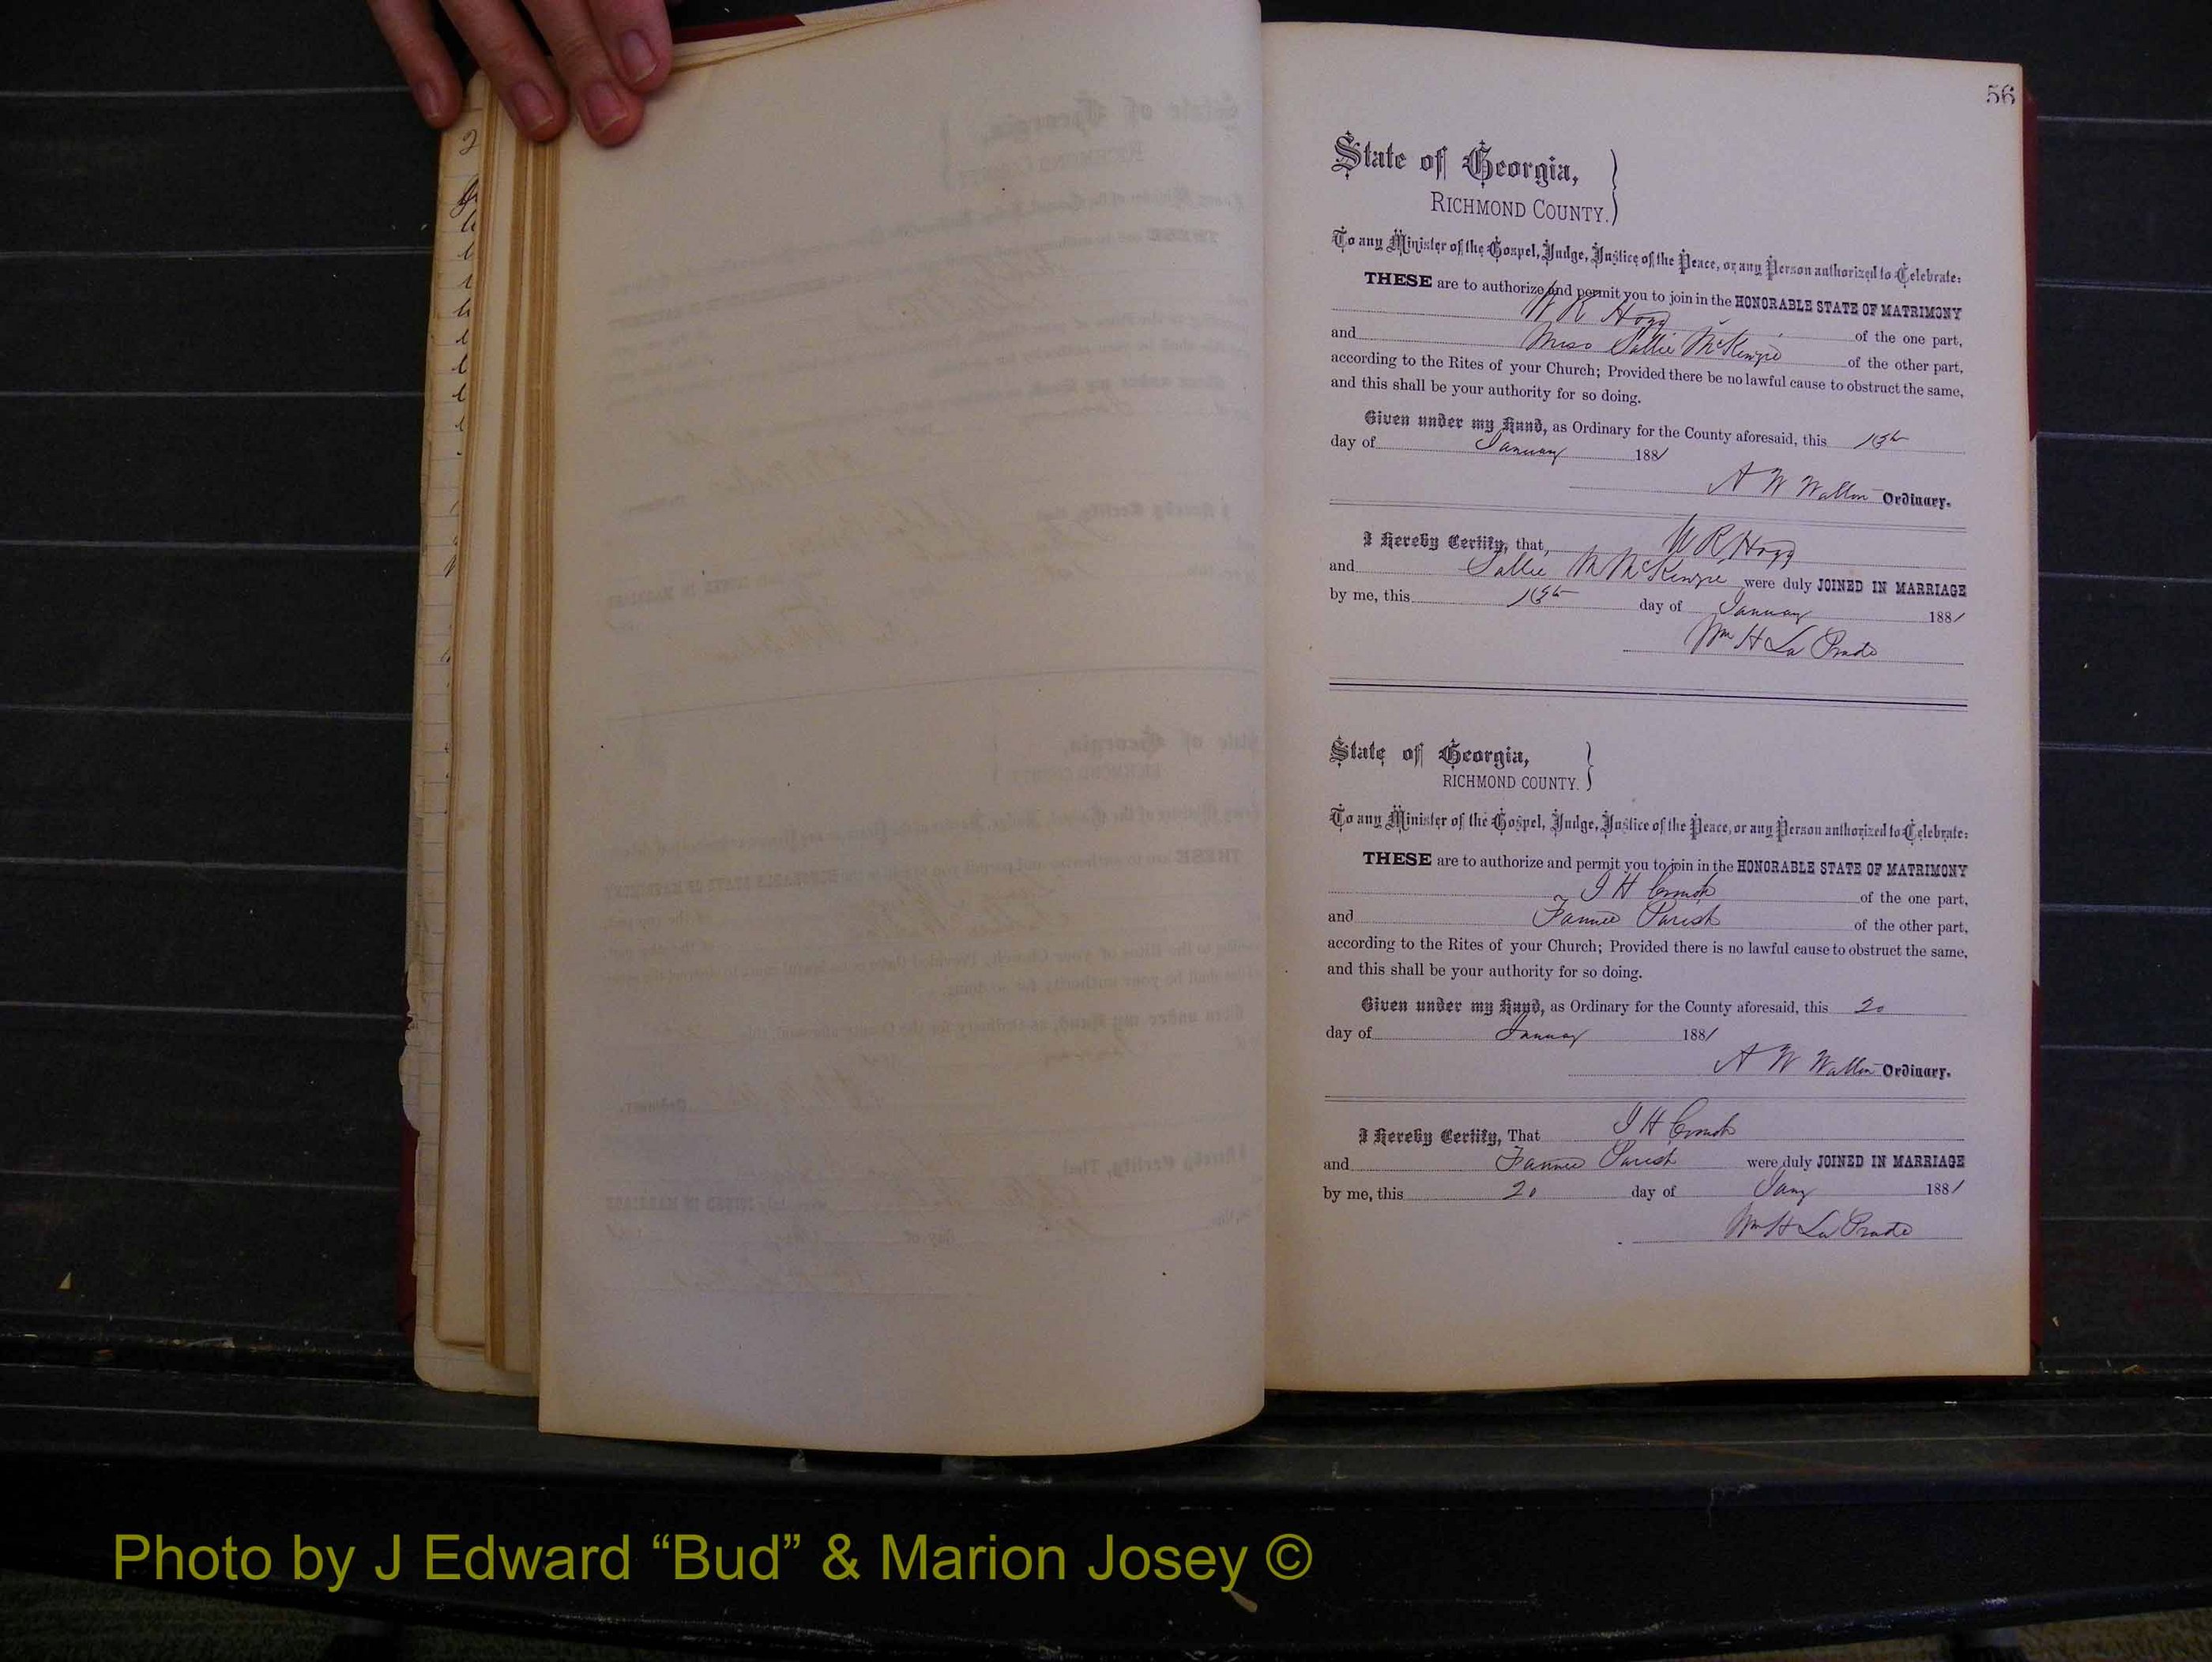 56
State of Georgia,
RICHMOND COUNTY.
To any Minister of the Gospel, Judge, Justice of the Peace, or any Person authorized to Celebrate:
THESE are to authorize and permit you to join in the HONORABLE STATE OF MATRIMONY
W R Hogg of the one part,
and Miss Sallie McKenzie of the other part,
according to the Rites of your Church; Provided there be no lawful cause to obstruct the same,
and this shall be your authority for so doing.
Given under my Hand, as Ordinary for the County aforesaid, this 15th
day of January 1881
A W Walton Ordinary.
I Hereby Certify, that, W R Hogg
and Sallie M McKenzie were duly JOINED IN MARRIAGE
by me, this 15th day of January 1881
Wm H La Prade
State of Georgia,
RICHMOND COUNTY.
To any Minister of the Gospel, Judge, Justice of the Peace, or any Person authorized to Celebrate:
THESE are to authorize and permit you to join in the HONORABLE STATE OF MATRIMONY
H of the one part,
and Fannie Parish of the other part,
according to the Rites of your Church; Provided there is no lawful cause to obstruct the same,
and this shall be your authority for so doing.
Given under my Hand, as Ordinary for the County aforesaid, this 20
day of January 1881
A W Walton Ordinary.
I Hereby Certify, That H
and Fannie Parish were duly JOINED IN MARRIAGE
by me, this 20 day of Jany 1881
Wm H La Prade
Photo by J Edward “Bud” & Marion Josey ©